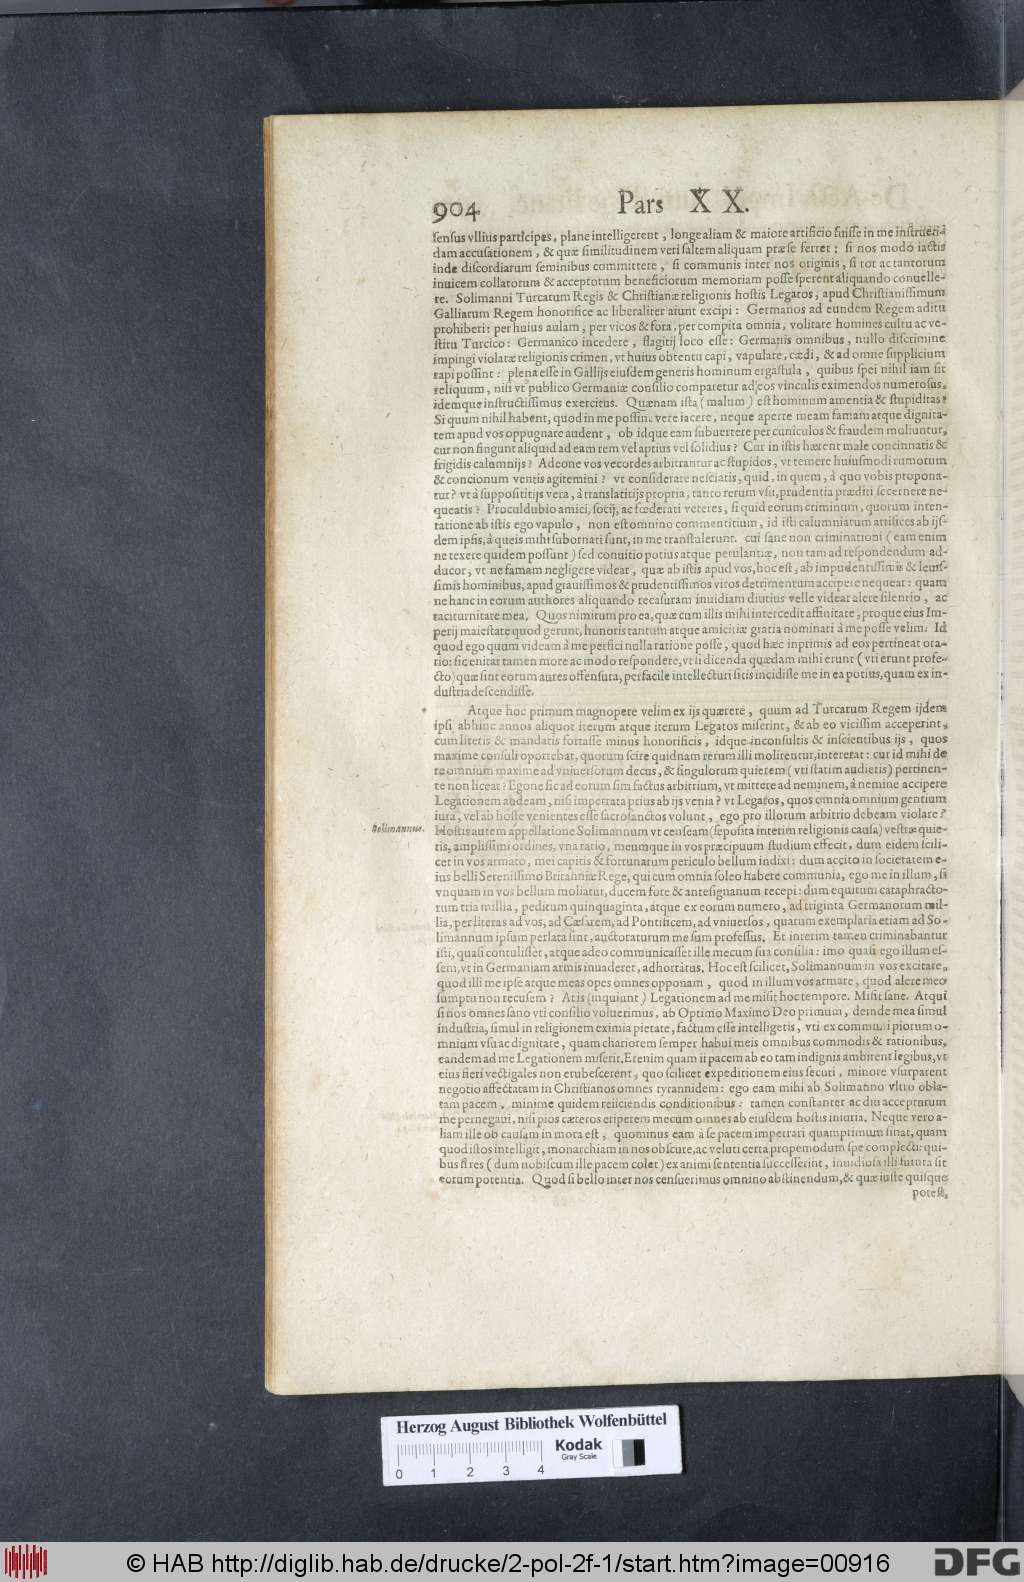 904 Pars XX.
sensus vllius participes, plane intelligerent, longe aliam & maiore artificio fuisse in me instruendā
dam accusationem, & quæ similitudinem veri saltem aliquam præ se ferret: si nos modò iactis
inde discordiarum seminibus committere, si communis inter nos originis, si tot ac tantorum
inuicem collatorum & acceptorum beneficiorum memoriam posse sperent aliquando conuelle-
re. Solimanni Turcarum Regis & Christianæ religionis hostis Legatos, apud Christianissimum
Galliarum Regem honorifice ac liberaliter aiunt excipi: Germanos ad eundem Regem aditu
prohiberi: per huius aulam, per vicos & fora, per compita omnia, volitare homines cultu ac ve-
stitu Turcico: Germanico incedere, flagitij loco esse: Germanis omnibus, nullo discrimine
impingi violatæ religionis crimen, vt huius obtentu capi, vapulare, cædi, & ad omne supplicium
rapi possint: plena esse in Gallijs eiusdem generis hominum ergastula, quibus spei nihil iam sit
reliquum, nisi vt publico Germaniæ consilio comparetur ad eos vinculis eximendos numerosus,
idemque instructissimus exercitus. Quænam ista (malum) est hominum amentia & stupiditas?
Si quum nihil habent, quod in me possint vere iacere, neque aperte meam famam atque dignita-
tem apud vos oppugnare audent, ob idque eam subuertere per cuniculos & fraudem moliuntur,
cur non fingunt aliquid ad eam rem vel aptius vel solidius? Cur in istis hærent male concinnatis &
frigidis calumnijs? Adeone vos vecordes arbitrantur ac stupidos, vt temere huiusmodi rumorum
& concionum ventis agitemini? vt considerare nesciatis, quid, in quem, à quo vobis propona-
tur? vt à supposititijs vera, à translatitijs propria, tanto rerum vsu, prudentia præditi secernere ne-
queatis? Proculdubio amici, socij, ac fœderati veteres, si quid eorum criminum, quorum inten-
tatione ab istis ego vapulo, non est omnino commentitium, id isti calumniarum artifices ab ijs-
dem ipsis, à queis mihi subornati sunt, in me transtulerunt. cui sane non criminationi (eam enim
ne texere quidem possunt) sed conuitio potius atque petulantiæ, non tam ad respondendum ad-
ducor, vt ne famam negligere videar, quæ ab istis apud vos, hoc est, ab impudentissimis & leuis-
simis hominibus, apud grauissimos & prudentissimos viros detrimentum accipere nequeat: quam
ne hanc in eorum authores aliquando recasuram inuidiam diutius velle videar alere silentio, ac
taciturnitate mea. Quos nimirum pro ea, quæ cum illis mihi intercedit affinitate, proque eius Im-
perij maiestate quod gerunt, honoris tantum atque amicitiæ gratia nominati à me posse velim. Id
quod ego quum videam à me perfici nulla ratione posse, quod hæc inprimis ad eos pertineat ora-
tio: sic enitar tamen more ac modo respondere, vt si dicenda quædam mihi erunt (vti erunt profe-
cto) quæ sint eorum aures offensura, perfacile intellecturi sitis incidisse me in ea potius, quam ex in-
dustria descendisse.
Atque hoc primum magnopere velim ex ijs quærere, quum ad Turcarum Regem ijdem
ipsi abhinc annos aliquot iterum atque iterum Legatos miserint, & ab eo vicissim acceperint,
cum literis & mandatis fortasse minus honorificis, idque inconsultis & inscientibus ijs, quos
maxime consuli oportebat, quorum scire quidnam rerum illi molirentur, intererat: cur id mihi de
re omnium maxime ad vniuersorum decus, & singulorum quietem (vti statim audietis) pertinen-
te non liceat? Egone sic ad eorum sim factus arbitrium, vt mittere ad neminem, à nemine accipere
Legationem audeam, nisi impetrata prius ab ijs venia? vt Legatos, quos omnia omnium gentium
iura, vel ab hoste venientes esse sacrosanctos volunt, ego pro illorum arbitrio debeam violare?
Solimannus. Hostis autem appellatione Solimannum vt censeam (seposita interim religionis causa) vestræ quie-
tis, amplissimi ordines, vna ratio, meumque in vos præcipuum studium effecit, dum eidem scili-
cet in vos armato, mei capitis & fortunarum periculo bellum indixi: dum accito in societatem e-
ius belli Serenissimo Britanniæ Rege, qui cum omnia soleo habere communia, ego me in illum, si
vnquam in vos bellum moliatur, ducem fore & antesignanum recepi: dum equitum cataphracto-
rum tria millia, peditum quinquaginta, atque ex eorum numero, ad triginta Germanorum mil-
lia, per literas ad vos, ad Cæsarem, ad Pontificem, ad vniuersos, quarum exemplaria etiam ad So-
limannum ipsum perlata sint, auctoraturum me sum professus. Et interim tamen criminabantur
isti, quasi contulisset, atque adeo communicasset ille mecum sua consilia: imo quasi ego illum es-
sem, vt in Germaniam armis inuaderet, adhortatus. Hoc est scilicet, Solimannum in vos excitare,
quod illi me ipse atque meas opes omnes opponam, quod in illum vos armare, quod alere meo
sumptu non recusem? At is (inquiunt) Legationem ad me misit hoc tempore. Misit sane. Atqui
si nos omnes sano vti consilio voluerimus, ab Optimo Maximo Deo primum, deinde mea simul
industria, simul in religionem eximia pietate, factum esse intelligetis, vti ex communi piorum o-
mnium vsu ac dignitate, quam chariorem semper habui meis omnibus commodis & rationibus,
eandem ad me Legationem miserit, Etenim quam ij pacem ab eo tam indignis ambirent legibus, vt
eius fieri vectigales non erubescerent, quo scilicet expeditionem eius secuti, minore vsurparent
negotio affectatam in Christianos omnes tyrannidem: ego eam mihi ab Solimanno vltro obla-
tam pacem, minime quidem reiiciendis conditionibus: tamen constanter ac diu accepturum
me pernegaui, nisi pios cæteros eriperem mecum omnes ab eiusdem hostis iniuria. Neque vero a-
liam ille ob causam in mora est, quominus eam à se pacem impetrari quamprimum sinat, quam
quod istos intelligit, monarchiam in nos obscure, ac veluti certa propemodum spe complecti: qui-
bus si res (dum nobiscum ille pacem colet) ex animi sententia successerint, inuidiosa illi futura sit
eorum potentia. Quod si bello inter nos censuerimus omnino abstinendum, & quæ iuste quisque
potest,
Herzog August Bibliothek Wolfenbüttel
Kodak
Gray Scale
0 1 2 3 4
© HAB http://diglib.hab.de/drucke/2-pol-2f-1/start.htm?image=00916
DFG